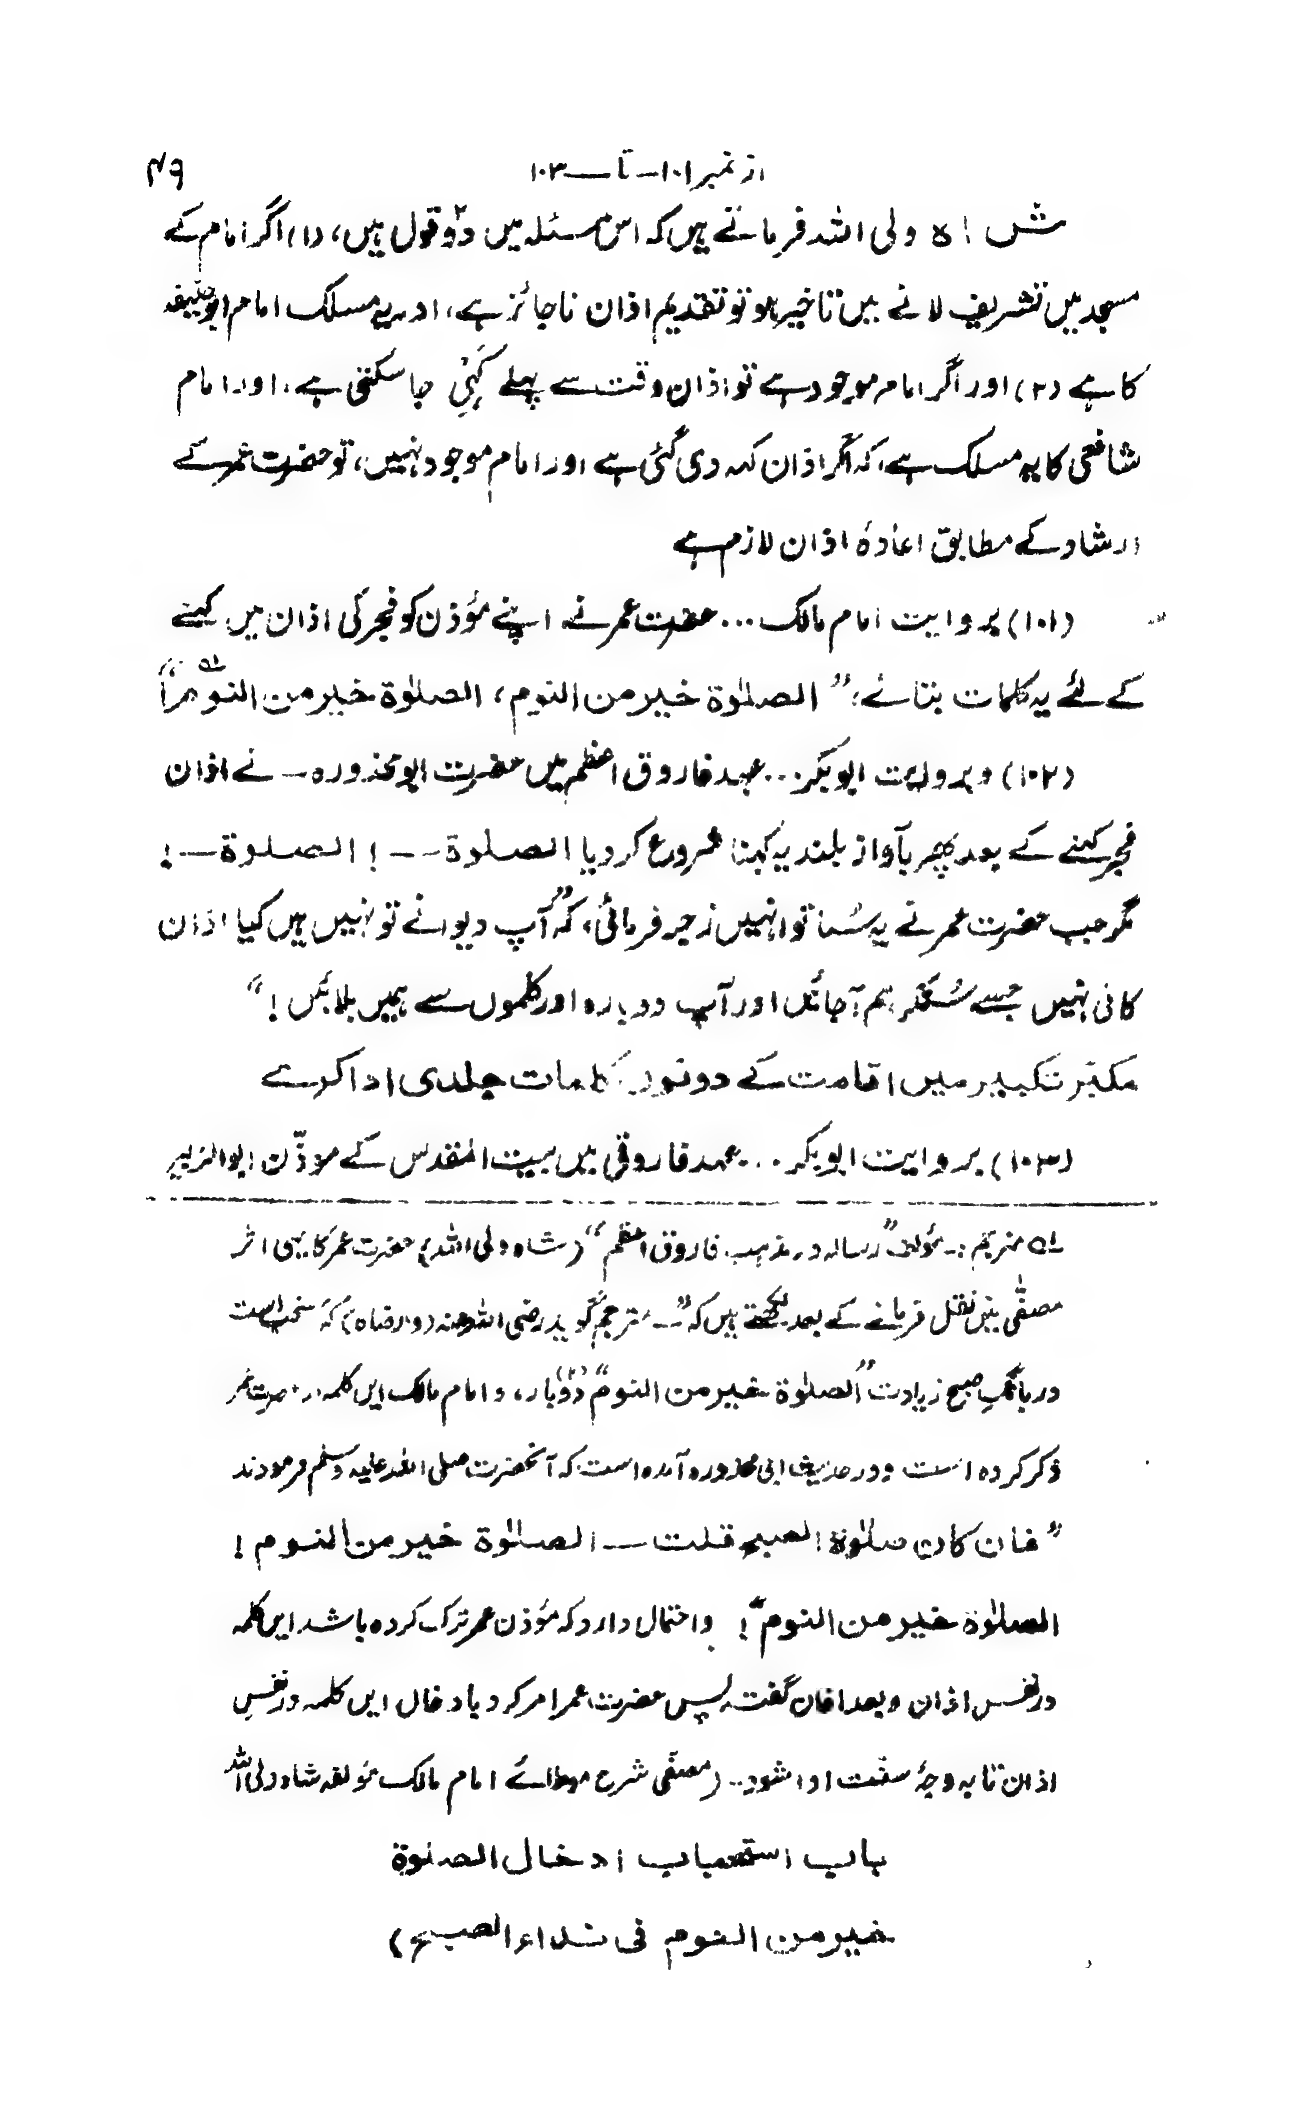 از نمبر ۱۰۱ — تا — ۱۰۳
۴۹
شاہ ولی اللہ فرماتے ہیں کہ اس مسئلہ میں دو۲ قول ہیں، (۱) اگر امام کے
مسجد میں تشریف لانے میں تاخیر ہو تو تقدیم اذان ناجائز ہے، اور یہ مسلک امام ابوحنیفہ
کا ہے (۲) اور اگر امام موجود ہے تو اذان وقت سے پہلے کہی جا سکتی ہے، اور امام
شافعی کا یہ مسلک ہے، کہ اگر اذان کہہ دی گئی ہے اور امام موجود نہیں، تو حضرت عمر کے
ارشاد کے مطابق اعادۂ اذان لازم ہے
(۱۰۱) بروایت امام مالک ... حضرت عمر نے اپنے مؤذن کو فجر کی اذان میں کہنے
کے لئے یہ کلمات بتائے: "الصلوٰۃ خیر من النوم، الصلوٰۃ خیر من النوم"
(۱۰۲) و بروایت ابوبکر ... عہد فاروق اعظم میں حضرت ابو محذورہ — نے اذان
فجر کہنے کے بعد پھر بآواز بلند یہ کہنا شروع کر دیا الصلوۃ -- ! الصلوۃ — !
مگر جب حضرت عمر نے یہ سُنا تو انہیں زجر فرمائی، کہ "آپ دیوانے تو نہیں ہیں کیا اذان
کافی نہیں جسے سُنکر ہم آجائیں اور آپ دوبارہ اور کلموں سے ہمیں بلائیں !"
مکبّر تکبیر میں اقامت کے دونوں کلمات جلدی ادا کرے
(۱۰۳) بروایت ابوبکر ... عہد فاروقی میں بیت المقدس کے موذّن ابو الزبیر
۱؎ مترجم :۔ مؤلف "رسالہ در مذہب فاروق اعظم" (شاہ ولی اللہ) حضرت عمر کا یہی اثر
مصفّٰی میں نقل فرمانے کے بعد لکھتے ہیں کہ "— مترجم گوید رضی اللہ عنہ (وارضاہ) کہ مستحب است
در بانگِ صبح زیادت "الصلوٰۃ خیر من النوم" دو (۲) بار، و امام مالک ایں کلمہ از حضرت عمر
ذکر کردہ است و در حدیث ابی محذورہ آمدہ است کہ آنحضرت صلی اللہ علیہ وسلم فرمودند
"فان کان صلوٰۃ الصبح قلت — الصلوٰۃ خیر من النوم !
الصلوٰۃ خیر من النوم" ! و احتمال دارد کہ مؤذن عمر ترک کردہ باشد ایں کلمہ
در نفس اذان و بعد اذان گفتہ پس حضرت عمر امر کرد بادخال ایں کلمہ در نفسِ
اذان تا بہ وجۂ سنّت ادا شود .. (مصفّی شرح موطائے امام مالک مؤلفہ شاہ ولی اللہ
باب استحباب ادخال الصلوٰۃ
خیر من النوم فی نداء الصبح)